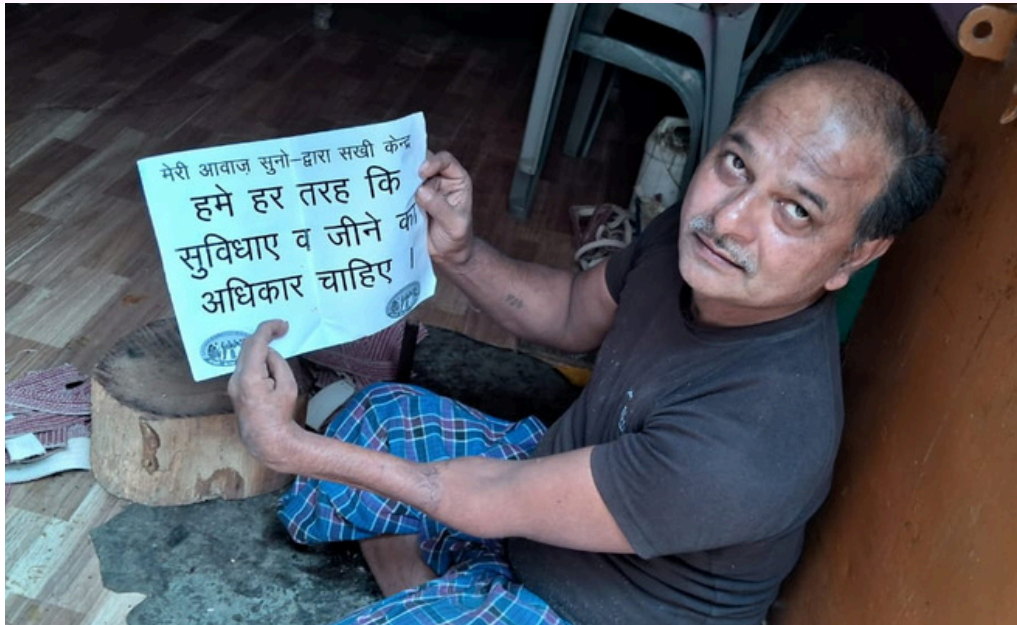 मेरी आवाज़ सुनो–द्वारा सखी केन्द्र
हमे हर तरह कि
सुविधाए व जीने का
अधिकार चाहिए ।